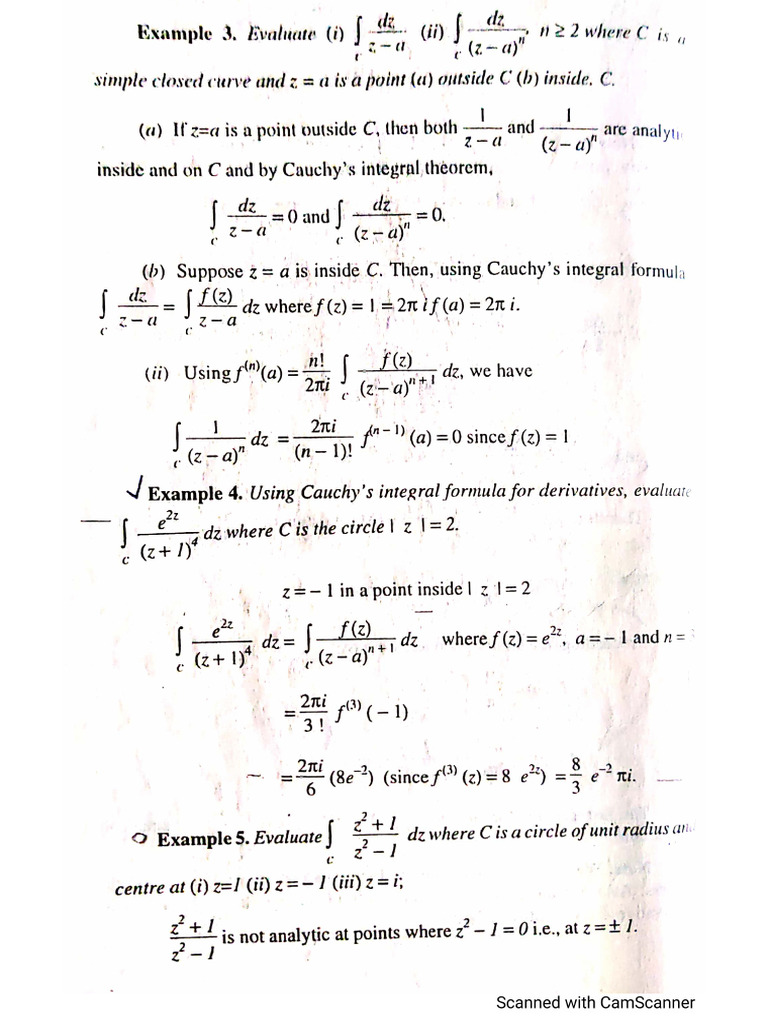 Example 3. Evaluate (i) ∫_C dz/(z – a) (ii) ∫_C dz/(z – a)^n, n ≥ 2 where C is a
simple closed curve and z = a is a point (a) outside C (b) inside. C.
(a) If z=a is a point outside C, then both 1/(z – a) and 1/(z – a)^n are analyti
inside and on C and by Cauchy's integral theorem,
∫_C dz/(z – a) = 0 and ∫_C dz/(z – a)^n = 0.
(b) Suppose z = a is inside C. Then, using Cauchy's integral formula
∫_C dz/(z – a) = ∫_C f(z)/(z – a) dz where f(z) = 1 = 2π i f(a) = 2π i.
(ii) Using f^(n)(a) = n!/2πi ∫_C f(z)/(z – a)^(n + 1) dz, we have
∫_C 1/(z – a)^n dz = 2πi/(n – 1)! f^(n – 1) (a) = 0 since f(z) = 1
Example 4. Using Cauchy's integral formula for derivatives, evaluate
∫_C e^2z/(z + 1)^4 dz where C is the circle | z | = 2.
z = – 1 in a point inside | z | = 2
∫_C e^2z/(z + 1)^4 dz = ∫_C f(z)/(z – a)^(n + 1) dz where f(z) = e^2z, a = – 1 and n =
= 2πi/3 ! f^(3) (– 1)
= 2πi/6 (8e^–2) (since f^(3) (z) = 8 e^2z) = 8/3 e^–2 πi.
Example 5. Evaluate ∫_C (z^2 + 1)/(z^2 – 1) dz where C is a circle of unit radius an
centre at (i) z=1 (ii) z = – 1 (iii) z = i;
(z^2 + 1)/(z^2 – 1) is not analytic at points where z^2 – 1 = 0 i.e., at z = ± 1.
Scanned with CamScanner